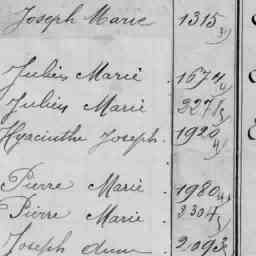 Joseph Marie 1315 3)
Julien Marie . 1674 4)
Julien Marie 2278 3)
Hyacinthe Joseph . 1920 4)
Pierre Marie . 1980 4)
Pierre Marie . 2304 3)
Joseph . 2093